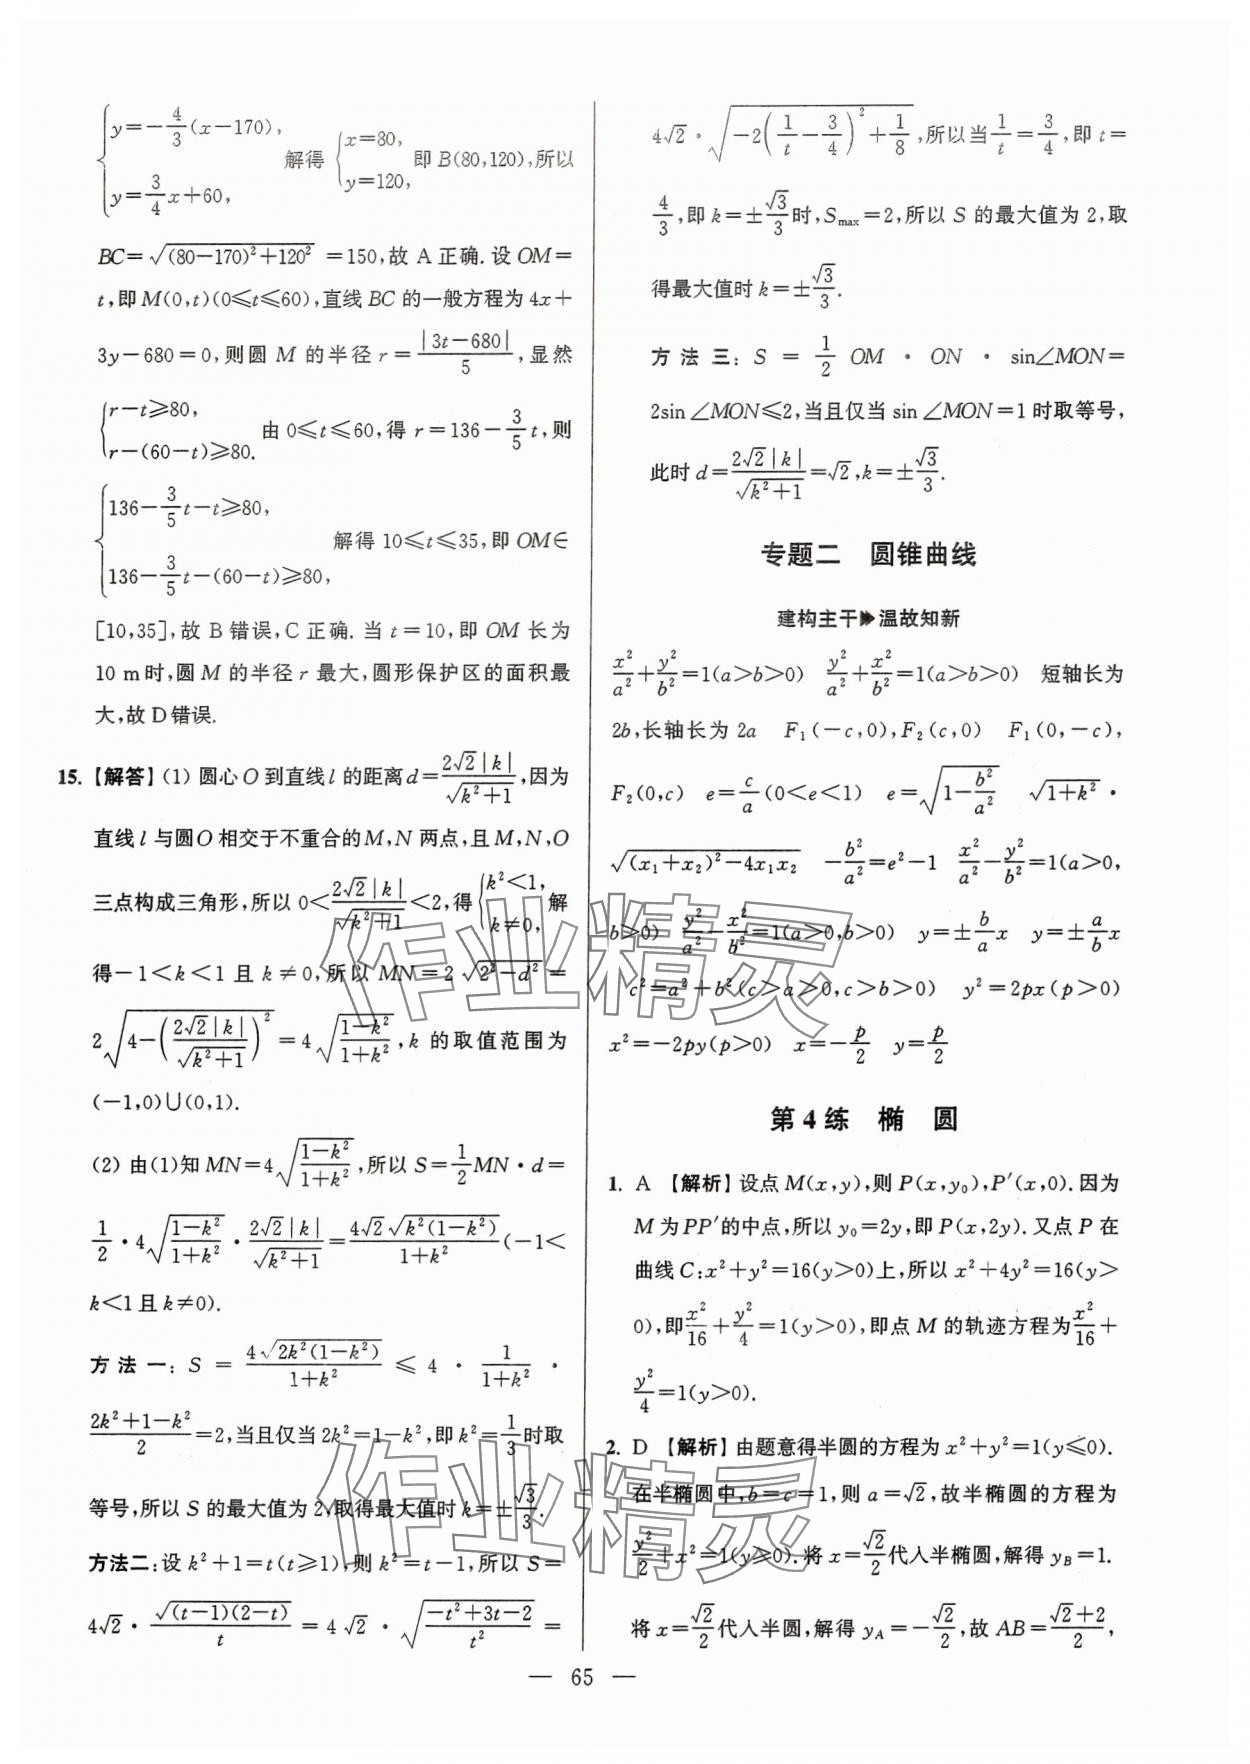 { y=-\frac{4}{3}(x-170), y=\frac{3}{4}x+60, 解得 { x=80, y=120, 即 B(80,120),所以
BC=√((80-170)²+120²) =150,故 A 正确.设 OM=
t,即 M(0,t)(0≤t≤60),直线 BC 的一般方程为 4x+
3y-680=0,则圆 M 的半径 r=\frac{|3t-680|}{5},显然
{ r-t≥80, r-(60-t)≥80. 由 0≤t≤60,得 r=136-\frac{3}{5}t,则
{ 136-\frac{3}{5}t-t≥80, 136-\frac{3}{5}t-(60-t)≥80, 解得 10≤t≤35,即 OM∈
[10,35],故 B 错误,C 正确.当 t=10,即 OM 长为
10 m时,圆 M 的半径 r 最大,圆形保护区的面积最
大,故 D 错误.
15.【解答】(1) 圆心 O 到直线 l 的距离 d=\frac{2√2|k|}{√(k²+1)},因为
直线 l 与圆 O 相交于不重合的 M,N 两点,且 M,N,O
三点构成三角形,所以 0<\frac{2√2|k|}{√(k²+1)}<2,得 { k²<1, k≠0, 解
得-1<k<1 且 k≠0,所以 MN=2√(2²-d²) =
2√(4-(\frac{2√2|k|}{√(k²+1)})²) =4√(\frac{1-k²}{1+k²}),k 的取值范围为
(-1,0)∪(0,1).
(2) 由(1)知 MN=4√(\frac{1-k²}{1+k²}),所以 S=\frac{1}{2}MN·d=
\frac{1}{2}·4√(\frac{1-k²}{1+k²})·\frac{2√2|k|}{√(k²+1)}=\frac{4√2√(k²(1-k²))}{1+k²}(-1<
k<1 且 k≠0).
方法一:S=\frac{4√(2k²(1-k²))}{1+k²}≤4·\frac{1}{1+k²}·
\frac{2k²+1-k²}{2}=2,当且仅当 2k²=1-k²,即 k²=\frac{1}{3}时取
等号,所以 S 的最大值为 2,取得最大值时 k=±\frac{√3}{3}.
方法二:设 k²+1=t(t≥1),则 k²=t-1,所以 S=
4√2·\frac{√((t-1)(2-t))}{t}=4√2·√(\frac{-t²+3t-2}{t²})=
4√2·√(-2(\frac{1}{t}-\frac{3}{4})²+\frac{1}{8}),所以当\frac{1}{t}=\frac{3}{4},即 t=
\frac{4}{3},即 k=±\frac{√3}{3}时,Smax=2,所以 S 的最大值为 2,取
得最大值时 k=±\frac{√3}{3}.
方法三:S=\frac{1}{2}OM·ON·sin∠MON=
2sin∠MON≤2,当且仅当 sin∠MON=1 时取等号,
此时 d=\frac{2√2|k|}{√(k²+1)}=√2,k=±\frac{√3}{3}.
专题二 圆锥曲线
建构主干▶温故知新
\frac{x²}{a²}+\frac{y²}{b²}=1(a>b>0) \frac{y²}{a²}+\frac{x²}{b²}=1(a>b>0) 短轴长为
2b,长轴长为 2a F₁(-c,0),F₂(c,0) F₁(0,-c),
F₂(0,c) e=\frac{c}{a}(0<e<1) e=√(1-\frac{b²}{a²}) √(1+k²)·
√((x₁+x₂)²-4x₁x₂) -\frac{b²}{a²}=e²-1 \frac{x²}{a²}-\frac{y²}{b²}=1(a>0,
b>0) \frac{y²}{a²}-\frac{x²}{b²}=1(a>0,b>0) y=±\frac{b}{a}x y=±\frac{a}{b}x
c²=a²+b²(c>a>0,c>b>0) y²=2px(p>0)
x²=-2py(p>0) x=-\frac{p}{2} y=\frac{p}{2}
第4练 椭 圆
1. A 【解析】设点 M(x,y),则 P(x,y₀),P′(x,0).因为
M 为 PP′的中点,所以 y₀=2y,即 P(x,2y).又点 P 在
曲线 C:x²+y²=16(y>0)上,所以 x²+4y²=16(y>
0),即\frac{x²}{16}+\frac{y²}{4}=1(y>0),即点 M 的轨迹方程为\frac{x²}{16}+
\frac{y²}{4}=1(y>0).
2. D 【解析】由题意得半圆的方程为 x²+y²=1(y≤0).
在半椭圆中,b=c=1,则 a=√2,故半椭圆的方程为
\frac{y²}{2}+x²=1(y≥0).将 x=\frac{√2}{2}代入半椭圆,解得 y_B=1.
将 x=\frac{√2}{2}代入半圆,解得 y_A=-\frac{√2}{2},故 AB=\frac{√2+2}{2},
— 65 —
作业精灵
作业精灵